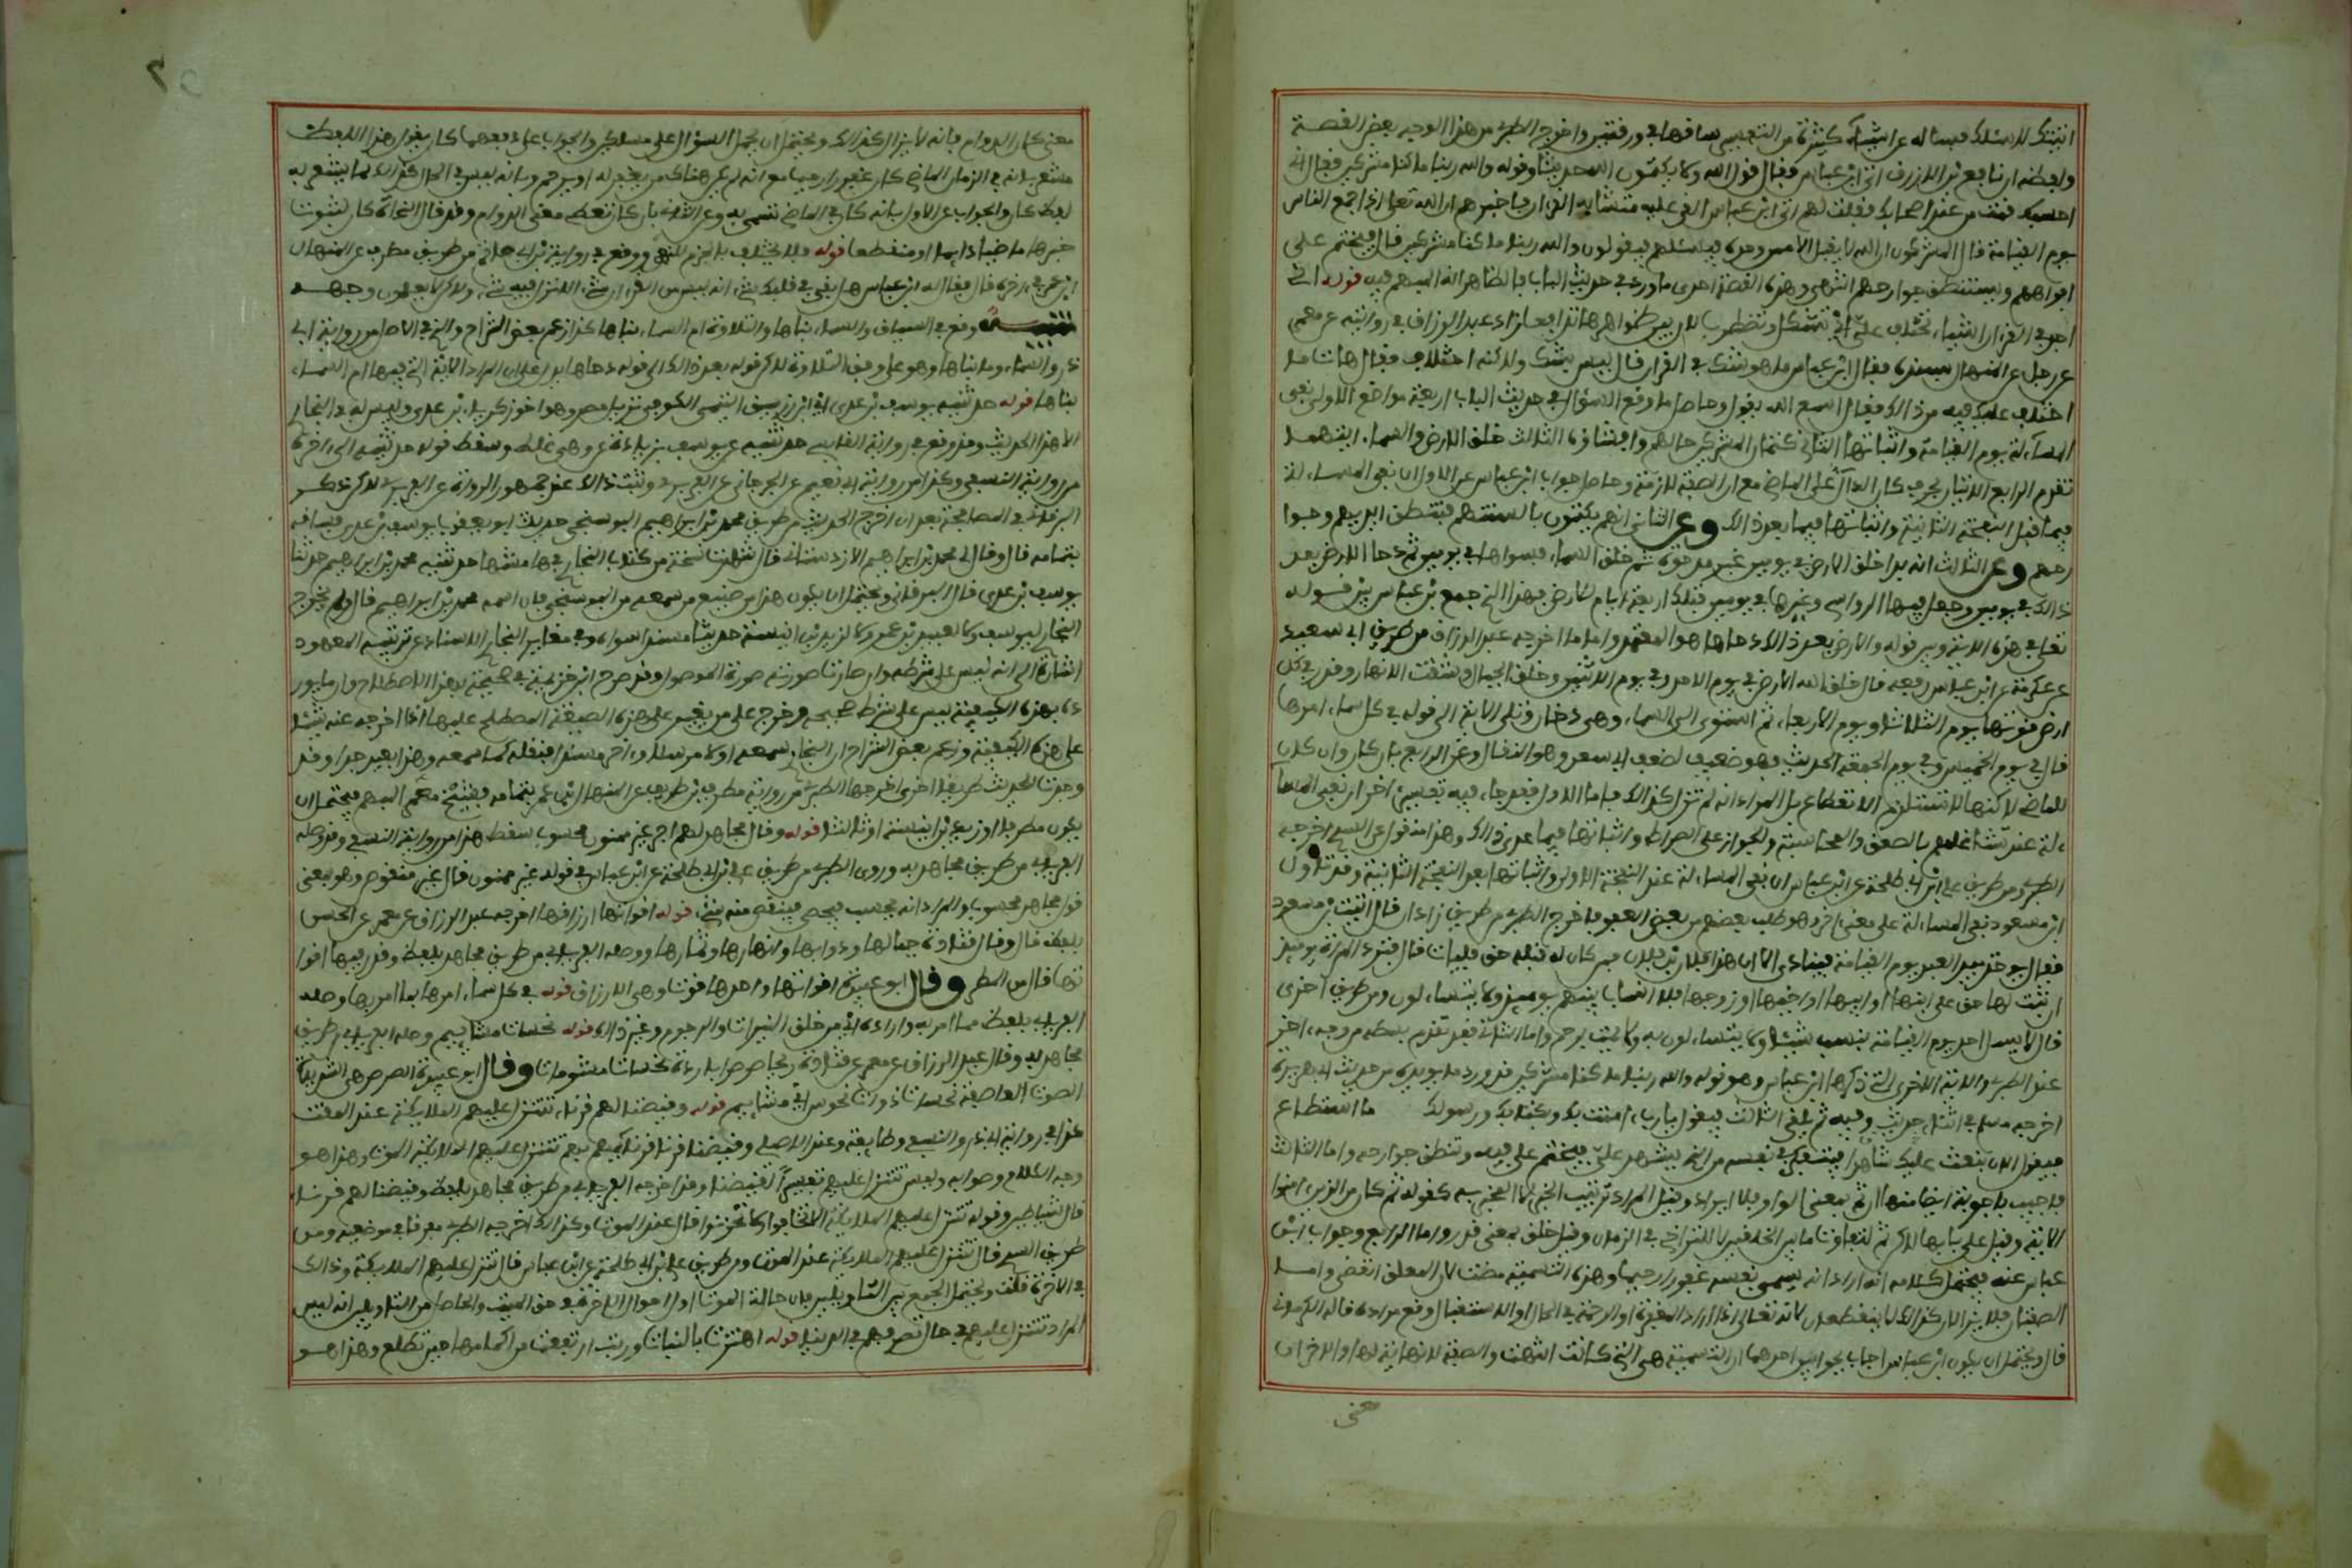 اتيتك لاسئلك فسأله عن اشياء كثيرة من التفسير ساقها في ورقتين واخرج الطبري من هذا الوجه بعض القصة
ولفظه ان نافع بن الازرق اتى ابن عباس فقال قول الله ولا يكتمون الله حديثا وقوله والله ربنا ما كنا مشركين فقال اني
احسبك قمت من عند اصحابك فقلت لهم اتى ابن عباس القي عليه متشابه القران فاخبرهم ان الله تعلى اذا جمع الناس
يوم القيامة قال المشركون ان الله لا يقبل الا من وحده فيسئلهم فيقولون والله ربنا ما كنا مشركين قال فيختم على
افواههم ويستنطق جوارحهم انتهى وهذه القصة احدى ما ورد في حديث الباب فالظاهر انه المبهم فيه قوله اني
اجد في القران اشياء تختلف علي اي تشكل وتضطرب لان بين ظواهرها تدافعا زاد عبد الرزاق في روايته عن معمر
عن رجل عن المنهال بسنده فقال ابن عباس ما هو اشك في القران قال ليس بشك ولاكنه اختلاف فقال هات ما
اختلف عليك فيه من ذالك فقال اسمع الله يقول وحاصل ما وقع السؤال في حديث الباب اربعة مواضع الاول نفي
المسآءلة يوم القيامة واثباتها الثاني كتمان المشركين حالهم وافشاؤه الثالث خلق الارض والسماء ايهما
تقدم الرابع الاتيان بحرف كان الدال على الماضي مع ان الصفة لازمة وحاصل جواب ابن عباس عن الاول ان نفي المساءلة
فيما قبل النفخة الثانية واثباتها فيما بعد ذالك وعن الثاني انهم يكتمون بالسنتهم فتنطق ايديهم وجوا
رحهم وعن الثالث انه بدا خلق الارض في يومين غير مدحوة ثم خلق السماء فسواها في يومين ثم دحا الارض بعد
ذالك في يومين وجعل فيها الرواسي وغيرها في يومين فتلك اربعة ايام للارض فهذا الذي جمع بن عباس بين قوله
تعلى في هذه الاية وبين قوله والارض بعد ذالك دحاها هو المعتمد واما ما اخرجه عبد الرزاق من طريق ابي سعيد
عن عكرمة عن ابن عباس رفعه قال خلق الله الارض في يوم الاحد وفي يوم الاثنين وخلق الجبال وشقق الانهار وقدر في كل
ارض قوتها يوم الثلاثاء ويوم الاربعاء ثم استوى الى السماء وهي دخان وتلى الاية الى قوله في كل سماء امرها
قال في يوم الخميس وفي يوم الجمعة الحديث فهو ضعيف لضعف ابي سعد وهو البقال وعن الرابع بان كان وان كان
للماضي لاكنها لا تستلزم الانقطاع بل المراد انه لم يزل كذالك فاما الاول فقد جاء فيه تفسير اخر ان نفي المسآ
ءلة عند تشاغلهم بالصعق والمحاسبة والجواز على الصراط واثباتها فيما عدى ذالك وهذا منقول عن السدي اخرجه
الطبري ومن طريق علي ابن ابي طلحة عن ابن عباس ان نفي المساءلة عند النفخة الاولى واثباتها بعد النفخة الثانية وقد تاول
ابن مسعود نفي المساءلة على معنى اخر وهو طلب بعضهم من بعض العفو فاخرج الطبري من طريق زاذان قال اتيت بن مسعود
فقال يوخذ بيد العبد يوم القيامة فينادى الا ان هذا فلان بن فلان فمن كان له قبله حق فليات قال فتود المراة يوميذ
ان يثبت لها حق على ابنها او ابيها او اخيها او زوجها فلا انساب بينهم يوميذ ولا يتساءلون ومن طريق اخرى
قال لا يسئل احد يوم القيامة بنسب شيئا ولا يتساءلون به ولا يمت برحم واما الثاني فقد تقدم بسطه من وجه اخر
عند الطبري والاية الاخرى التي ذكرها ابن عباس وهو قوله والله ربنا ما كنا مشركين قد ورد ما يويده من حديث ابي هريرة
اخرجه مسلم في اثناء حديث وفيه ثم يلقى الثالث فيقول يارب ءامنت بك وبكتابك ورسولك ما استطاع
فيقول الان نبعث عليك شاهدا فيتفكر في نفسه من الذي يشهد علي فيختم على فيه وتنطق جوارحه واما الثالث
فاجيب باجوبة ايضا منها ان ثم بمعنى الواو فلا ايراد وقيل المراد ترتيب الخبر لا المخبر به كقوله ثم كان من الذين ءامنوا
الاية وقيل على بابها لاكن ثم لتفاوت ما بين الخلقتين لا للتراخي في الزمان وقيل خلق بمعنى قدر واما الرابع وجواب ابن
عباس عنه فيحتمل كلامه انه اراد انه يسمى نفسه غفورا رحيما وهذه التسمية مضت لان التعلق انقضى واما
الصفتان فلا يزالان كذالك لا ينقطعان لانه تعالى اذا اراد المغفرة او الرحمة في الحال او الاستقبال وقع مراده قاله الكرماني
قال ويحتمل ان يكون ابن عباس اجاب بجوابين احدهما ان التسمية هي التي كانت انتهت والصفة لا نهاية لها والاخر ان
معنى
معنى كان الدوام فانه لا يزال كذالك ويحتمل ان يحمل السؤال على مسلكين والجواب على دفعهما كان يقول هذا اللفظ
مشعر بانه في الزمان الماضي كان غفورا رحيما مع انه لم يكن هناك من يغفر له او يرحم وبانه ليس في الحال كذالك لما يشعر به
لفظ كان والجواب عن الاول بانه كان في الماضي تسمى به وعن الثاني بان كان تعطى معنى الدوام وقد قال النحاة كان لثبوت
خبرها ماضيا دايما او منقطعا قوله فلا يختلف بالجزم للنهي ووقع في رواية بن ابي حاتم من طريق مطرف عن المنهال
ابن عمرو في ءاخره قال فقال له ابن عباس هل بقي في قلبك شيء انه ليس من القران شيء الا نزل فيه شيء ولاكن لا تعلمون وجهه
تنبيه وقع في السياق والسماء بناها والتلاوة ام السماء بناها كذا زعم بعض الشراح والذي في الاصل من رواية ابي
ذر والسماء وما بناها وهو على وفق التلاوة لاكن قوله بعد ذالك الى قوله دحاها يدل على ان المراد الاية التي فيها ام السماء
بناها قوله حدثنيه يوسف بن عدي اي ابن زريق التيمي الكوفي نزيل مصر وهو اخو زكرياء بن عدي وليس له في البخاري
الا هذا الحديث وقد وقع في رواية القابسي حدثنيه عن يوسف بزيادة عن وهي غلط وسقط قوله حدثنيه الى ءاخره
من رواية النسفي وكذا من رواية ابي نعيم عن الجرجاني عن الفربري وثبت ذالك عند جمهور الرواة عن الفربري لاكن ذكر
البرقاني في المصافحة بعد ان اخرج الحديث من طريق محمد بن ابراهيم البوسنجي حدثنا ابو يعقوب يوسف بن عدي فساقه
بتمامه قال وقال لي محمد بن ابراهيم الاردستاني قال شاهدت نسخة من كتاب البخاري في هامشها حدثنيه محمد بن ابراهيم حدثنا
يوسف بن عدي قال البرقاني ويحتمل ان يكون هذا من صنيع من سمعه من البوسنجي فان اسمه محمد بن ابراهيم قال ولم يخرج
البخاري ليوسف ولا لعبيد بن عمرو ولا لزيد بن ابي انيسة حديثا مسندا سواه وفي مغايرة البخاري الاسناد عن ترتيبه المعهود
اشارة الى انه ليس على شرطه وان صارت صورته صورة الموصول وقد صرح ابن خزيمة في صحيحه بهذا الاصطلاح وان ما يور
ده بهذه الكيفية ليس على شرط صحيحه وخرج على من يغير على هذه الصيغة المصطلح عليها اذا اخرجه عنه شيئا
على هذه الكيفية وزعم بعض الشراح ان البخاري سمعه اولا مرسلا وءاخرا مسندا فنقله كما سمعه وهذا بعيد جدا وقد
وجدت للحديث طريقا اخرى اخرجها الطبري من رواية مطرف بن طريف عن المنهال ابن عمرو بتمامه فشيخ معمر المبهم يحتمل ان
يكون مطرفا او زيد بن ابي انيسة او ثالثا قوله وقال مجاهد لهم اجر غير ممنون محسوب سقط هذا من رواية النسفي وقد وصله
الفريابي من طريق مجاهد به وروى الطبري من طريق علي بن ابي طلحة عن ابن عباس في قوله غير ممنون قال غير منقوص وهو بمعنى
قول مجاهد محسوب والمراد انه يحسب فيحصى فلا ينقص منه شيء قوله اقواتها ارزاقها اخرجه عبد الرزاق عن معمر عن الحسن
بلفظ قال وقال قتادة جبالها ودوابها وانهارها وثمارها ووصله الفريابي من طريق مجاهد بلفظ وقدر فيها اقوا
تها قال من المطر وقال ابو عبيدة اقواتها واحدها قوت وهي الارزاق قوله في كل سماء امرها بما امر بها وصله
الفريابي بلفظ مما امر به واراده اي من خلق النيرات والرجوم وغير ذالك قوله نحسات مشاييم وصله الفريابي من طريق
مجاهد به وقال عبد الرزاق عن معمر عن قتادة ريحا صرصرا باردة نحسات مشومات وقال ابو عبيدة الصرصر هي الشديدة
الصوت العاصفة نحسات ذوات نحوس اي مشاييم قوله وقيضنا لهم قرناء تتنزل عليهم الملايكة عند الموت
كذا في رواية ابي ذر والنسفي وطايفة وعند الاصيلي وقيضنا لهم قرناء قرناهم بهم تتنزل عليهم الملايكة عند الموت وهذا هو
وجه الكلام وصوابه وليس تتنزل عليهم تفسيرا لقيضنا وقد اخرجه الفريابي من طريق مجاهد بلفظ وقيضنا لهم قرناء
قال شياطين وقوله تتنزل عليهم الملايكة الا تخافوا ولا تحزنوا قال عند الموت وكذالك اخرجه الطبري مفرقا في موضعيه ومن
طريق السدي قال تتنزل عليهم الملايكة عند الموت ومن طريق علي بن ابي طلحة عن ابن عباس قال تتنزل عليهم الملايكة وذالك
في الاخرة قلت ويحتمل الجمع بين التاويلين فان حالة الموت اول احوال الاخرة في حق الميت والحاصل من التاويلين انه ليس
المراد تتنزل عليهم في حال تصرفهم في الدنيا قوله اهتزت بالنبات وربت ارتفعت من اكمامها حين تطلع وهذا هو